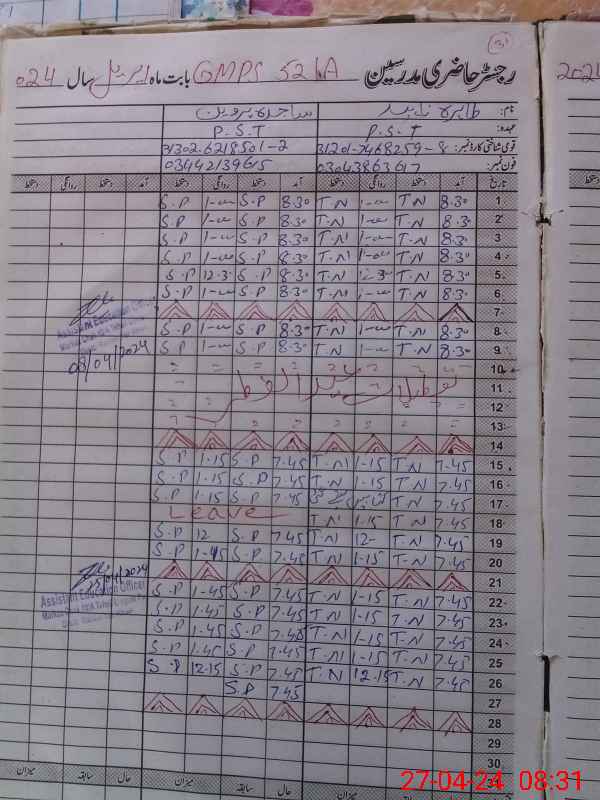 3
رجسٹر حاضری مدرسین GMPS 521A بابت ماہ اپریل سال 024
نام: طاہرہ ناہید ساجدہ پروین
عہدہ: P.S.T P.S.T
قومی شناختی کارڈ نمبر: 31201-7468259-8 31302-6218501-2
فون نمبر: 03043863617 03442139615
تاریخ آمد دستخط روانگی دستخط آمد دستخط روانگی دستخط آمد دستخط روانگی دستخط
1 8.30 T.N 1-00 T.N 8.30 S.P 1-00 S.P
2 8.30 T.N 1-00 T.N 8.30 S.P 1-00 S.P
3 8.30 T.N 1-00 T.N 8.30 S.P 1-00 S.P
4 8.30 T.N 1-00 T.N 8.30 S.P 1-00 S.P
5 8.30 T.N 12-30 T.N 8.30 S.P 12.30 S.P
6 8.30 T.N 1-00 T.N 8.30 S.P 1-00 S.P
7
8 8.30 T.N 1-00 T.N 8.30 S.P 1-00 S.P
9 8.30 T.N 1-00 T.N 8.30 S.P 1-00 S.P
Assistant Education Officer
08/04/2024
10
11 تعطیلات عید الفطر
12
13
14
15 7.45 T.N 1-15 T.N 7.45 S.P 1-15 S.P
16 7.45 T.N 1-15 T.N 7.45 S.P 1-15 S.P
17 7.45 T.N 7.45 S.P 1-15 S.P
18 7.45 T.N 1.15 T.N Leave
19 7.45 T.N 12- T.N 7.45 S.P 12 S.P
20 7.45 T.N 1-15 T.N 7.45 S.P 1-45 S.P
21
/04/2024
Assistant Education Officer
22 7.45 T.N 1-15 T.N 7.45 S.P 1-45 S.P
23 7.45 T.N 1-15 T.N 7.45 S.P 1.45 S.P
24 7.45 T.N 1-15 T.N 7.45 S.P 1.45 S.P
25 7.45 T.N 1-15 T.N 7.45 S.P 1.45 S.P
26 7.45 T.N 12.15 T.N 7.45 S.P 12.15 S.P
27 7.45 S.P
28
29
30
31
حال سابقہ میزان حال سابقہ میزان
27-04-24 08:31